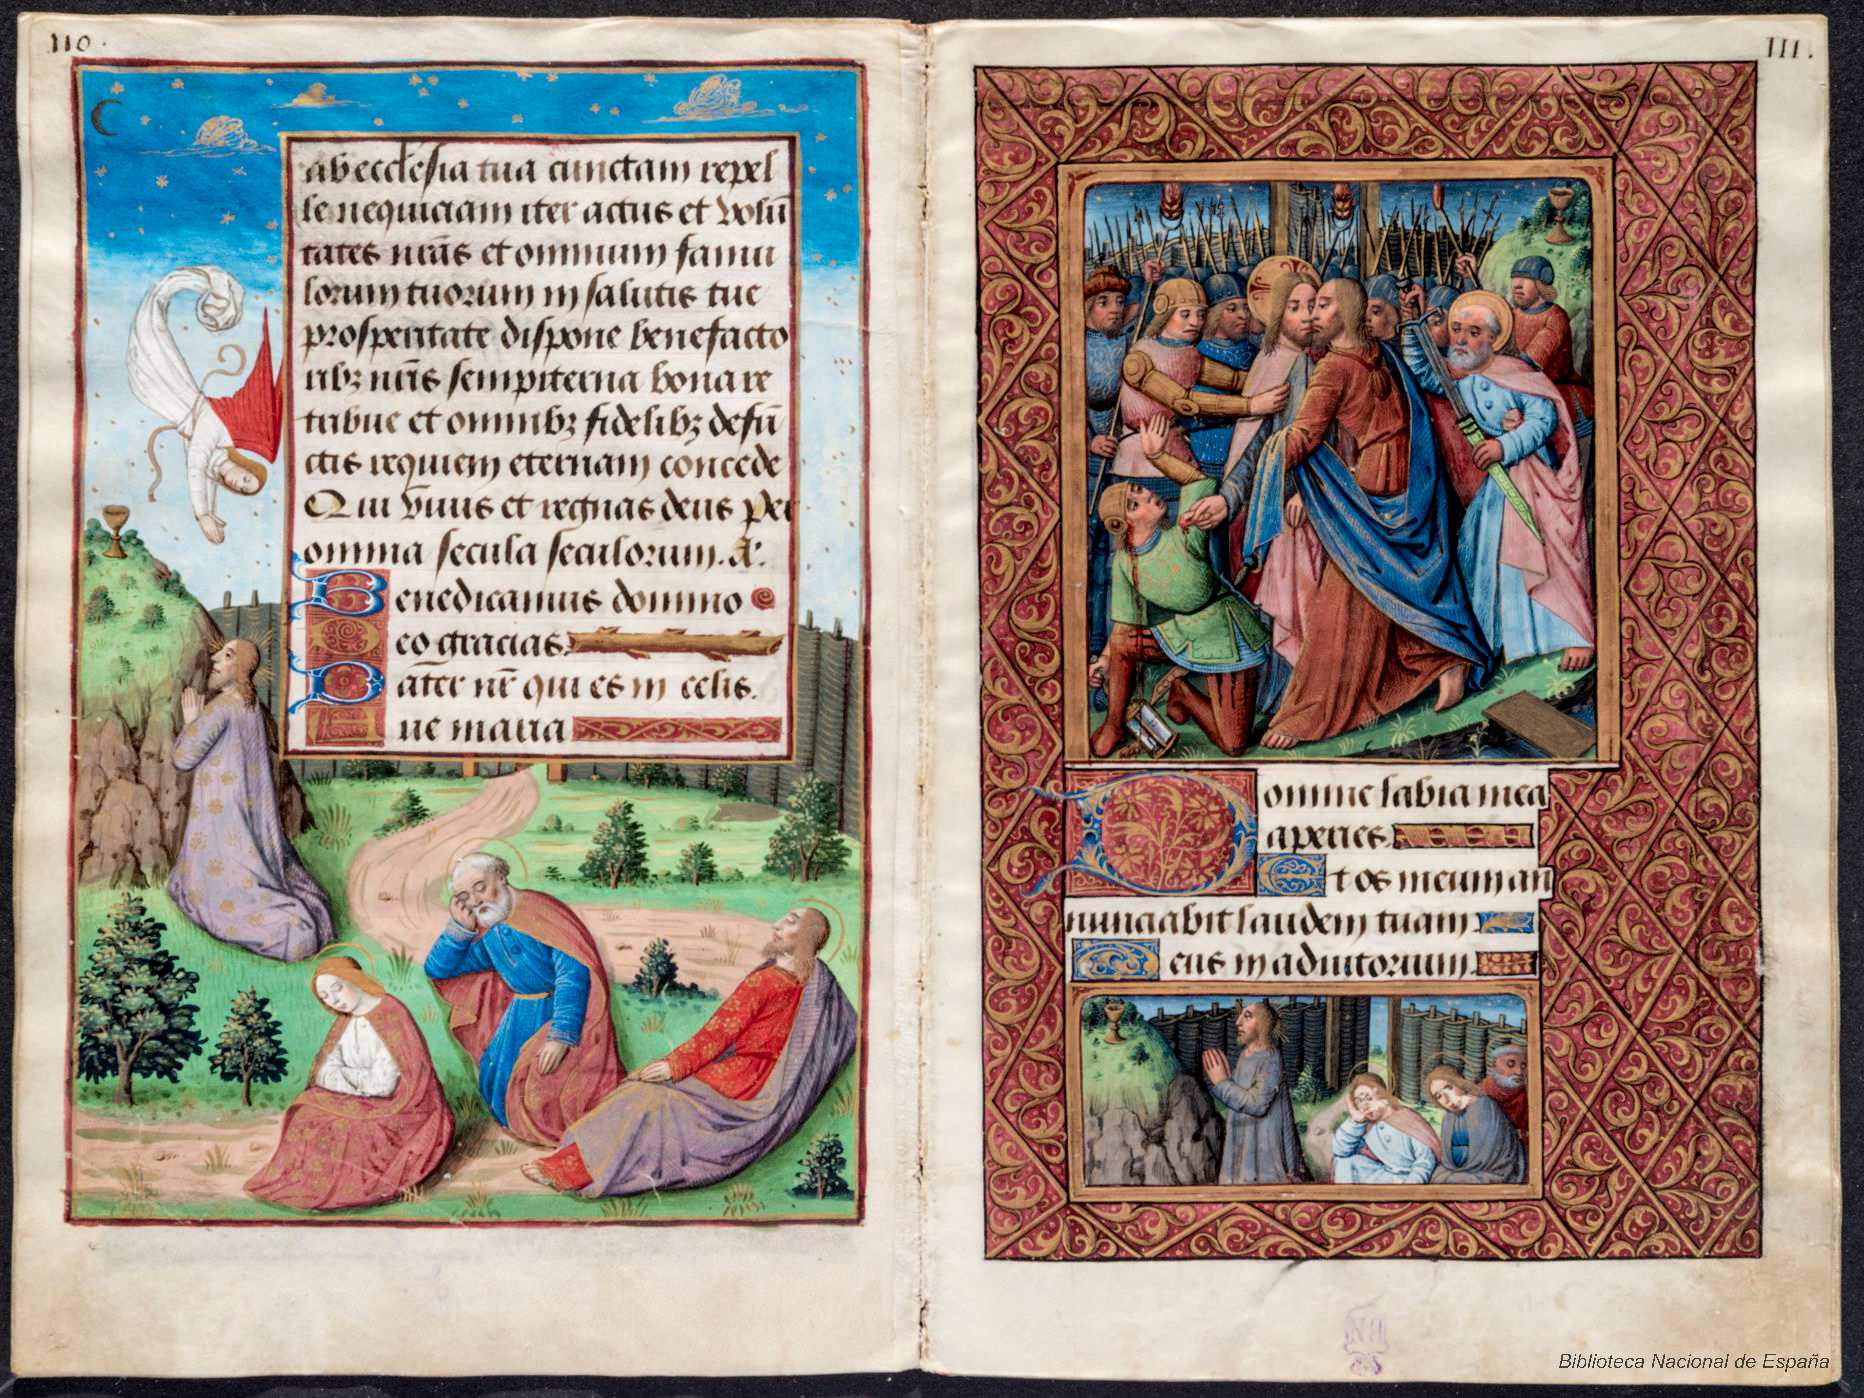 110.
ab ecclesia tua cunctam repel
le nequiciam iter actus et volũ
tates nr̃as et omnium famu
lorum tuorum in salutis tue
prosperitate dispone benefacto
ribꝫ nr̃is sempiterna bona re
tribue et omnibꝫ fidelibꝫ defũ
ctis requiem eternam concede
Qui vivis et regnas deus per
omnia secula seculorum. A.
Benedicamus domino
Deo gracias.
Pater nr̃ qui es in celis.
Ave maria
111.
Domine labia mea
aperies.
Et os meum an̄
nunciabit laudem tuam.
Deus in adiutorium.
BN
Biblioteca Nacional de España